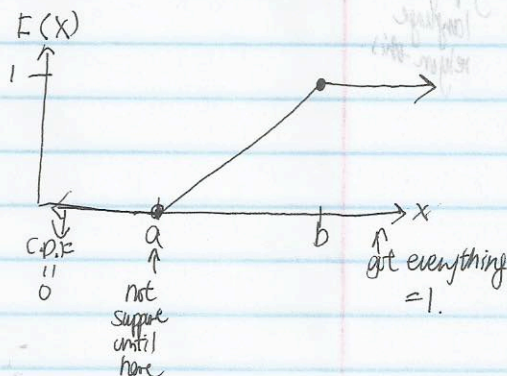 F(X)
1
a
b
X
C.D.F
=
0
not
suppore
until
here
got everything
=1.